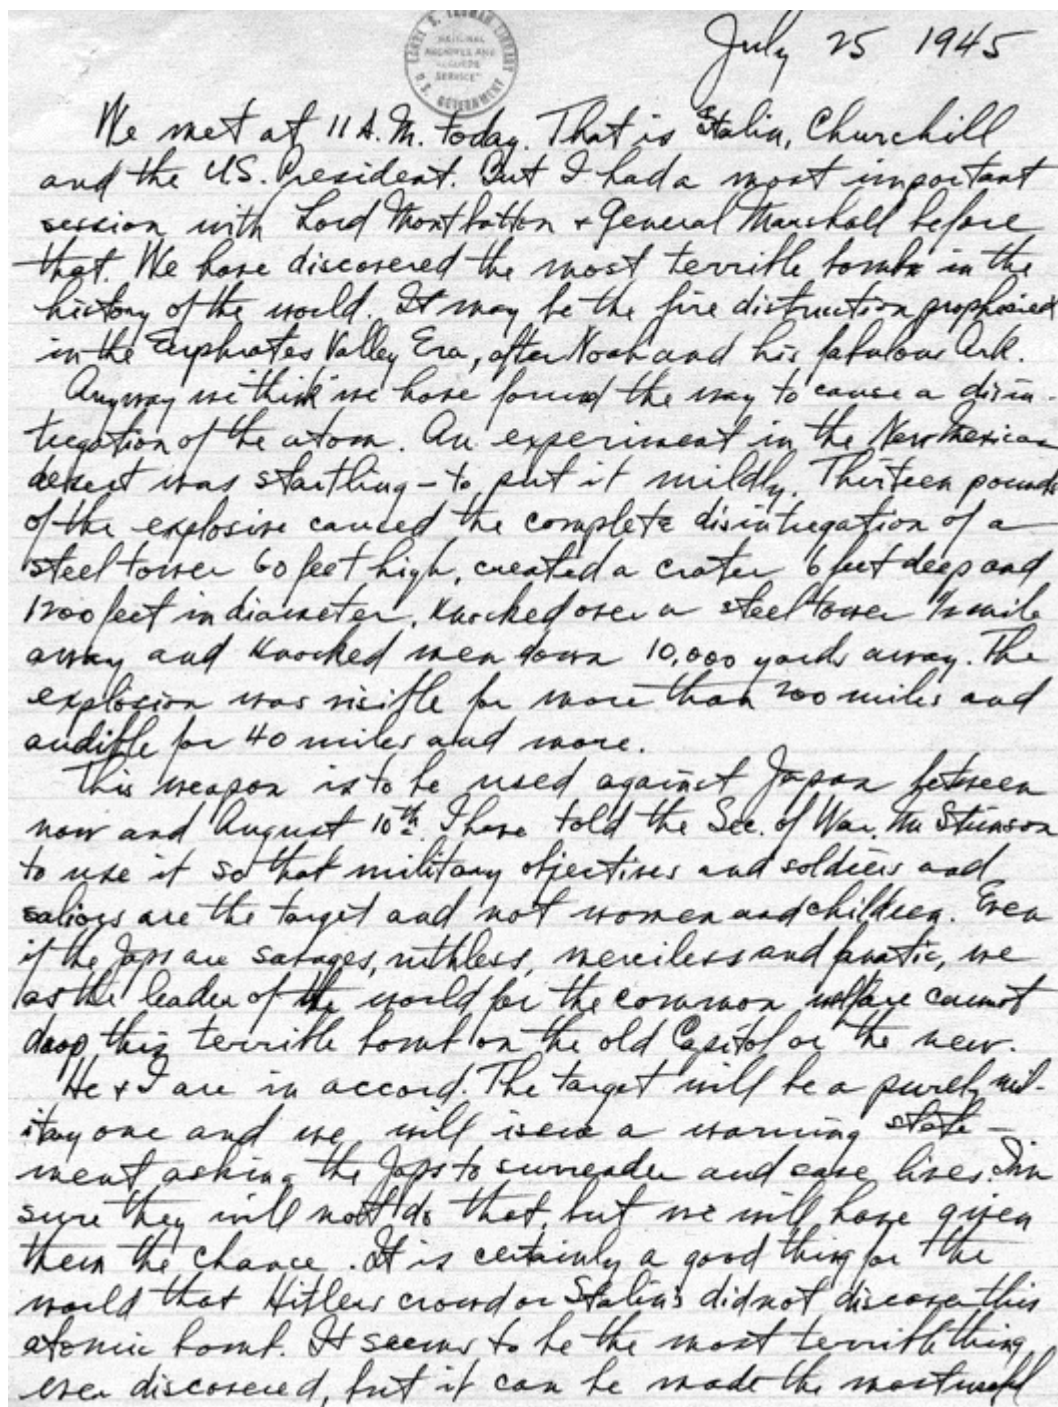 HARRY S. TRUMAN LIBRARY
"NATIONAL
ARCHIVES AND
RECORDS
SERVICE"
U.S. GOVERNMENT
July 25 1945
We met at 11 A.M. today. That is Stalin, Churchill
and the U.S. President. But I had a most important
session with Lord Montbatton + General Marshall before
that. We have discovered the most terrible bomb in the
history of the world. It may be the fire distruction prophesied
in the Euphrates Valley Era, after Noah and his fabulous Ark.
Anyway we think we have found the way to cause a disin-
tegration of the atom. An experiment in the New Mexican
desert was startling - to put it mildly. Thirteen pounds
of the explosive caused the complete disintegration of a
steel tower 60 feet high, created a crater 6 feet deep and
1200 feet in diameter, knocked over a steel tower 1/2 mile
away and knocked men down 10,000 yards away. The
explosion was visible for more than 200 miles and
audible for 40 miles and more.
This weapon is to be used against Japan between
now and August 10th. I have told the Sec. of War, Mr Stimson
to use it so that military objectives and soldiers and
sailors are the target and not women and children. Even
if the Japs are savages, ruthless, merciless and fanatic, we
as the leader of the world for the common welfare cannot
drop this terrible bomb on the old Capitol or the new.
He + I are in accord. The target will be a purely mil-
itary one and we will issue a warning state-
ment asking the Japs to surrender and save lives. I'm
sure they will not do that, but we will have given
them the chance. It is certainly a good thing for the
world that Hitlers crowd or Stalin's did not discover this
atomic bomb. It seems to be the most terrible thing
ever discovered, but it can be made the most useful